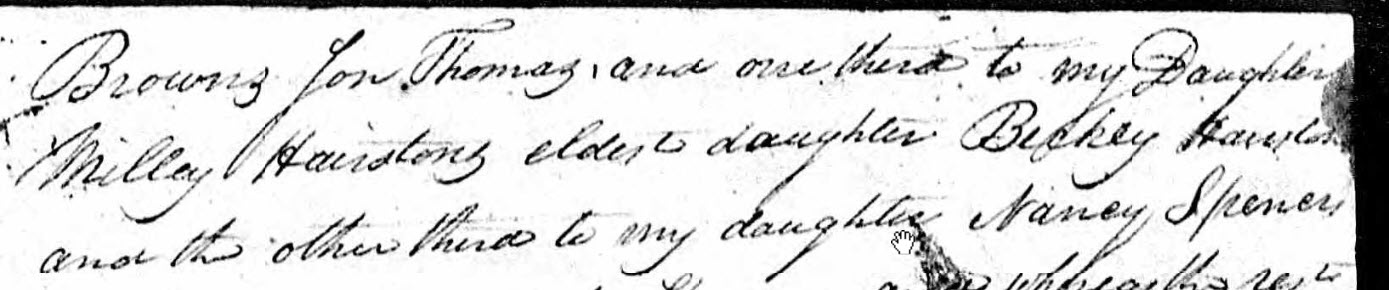 Browns Son Thomas, and one third to my Daughter
Milley Hairstons eldest daughter Beckey Hairston
and the other third to my daughter Nancy Spencers
whereas the rest